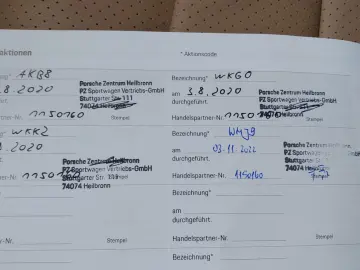 aktionen
* Aktionsstelle
nung* AKB8
8.2020
Porsche Zentrum Heilbronn
PZ Sportwagen Vertriebs-GmbH
Stuttgarter Str. 111
74074 Heilbronn
-Nr. 1150160
Stempel
nung* WKK2
.2020
Porsche Zentrum Heilbronn
PZ Sportwagen Vertriebs-GmbH
Stuttgarter Str. 111
74074 Heilbronn
-Nr. 1150160
nung*
rt.
er-Nr.
Stempel
Bezeichnung* WKG0
am 3.8.2020
durchgeführt.
Porsche Zentrum Heilbronn
PZ Sportwagen Vertriebs-GmbH
Stuttgarter Str. 111
74074 Heilbronn
Handelspartner-Nr. 1150160
Stempel
Bezeichnung* WMJ9
am 03.11.2022
durchgeführt.
Porsche Zentrum
PZ Sportwagen Ve
Stuttgarter Str.
74074 Heilbronn
Handelspartner-Nr. 1150160
Stempel
Bezeichnung*
am
durchgeführt.
Handelspartner-Nr.
Stempel
Bezeichnung*